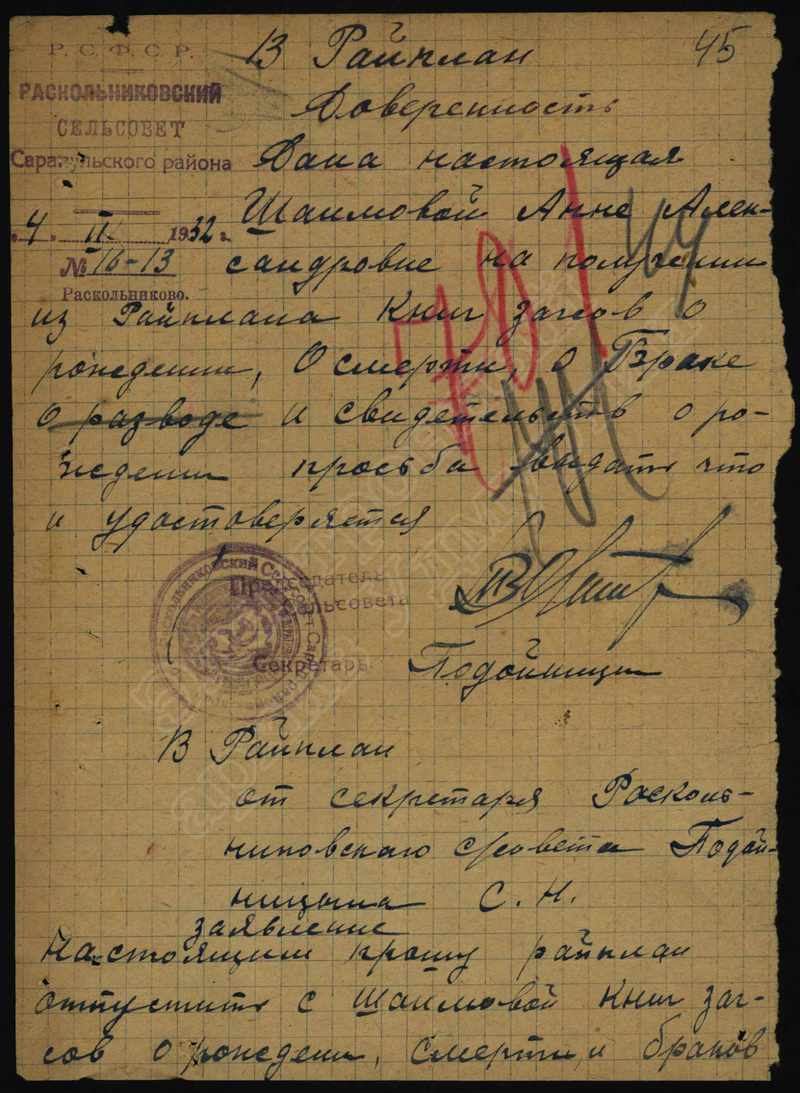 Р.С.Ф.С.Р.
РАСКОЛЬНИКОВСКИЙ
СЕЛЬСОВЕТ
Сарапульского района
4 II 1932 г.
№ 16-13
Раскольниково.
45
В Райплан
Доверенность
Дана настоящая
Шаимовой Анне Алек-
сандровне на получении
из Райплана Книг загсов о
рождении, О смерти, о Браке
о разводе и свидетельств о ро-
ждении просьба выдать что
и удостоверяется
Председатель
Сельсовета
Секретарь
Подойницин
В Райплан
от секретаря Расколь-
никовского с/совета Подой-
ницына С. Н.
заявление
Настоящим прошу райплан
отпустить с Шаимовой Книг заг-
сов о рождени, смерти, и браков